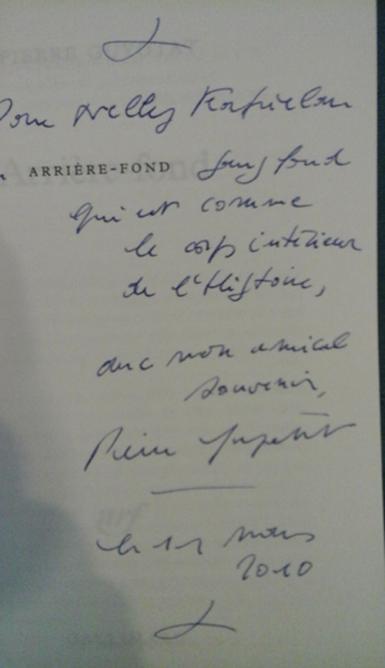 Pour Nelly Kaprielan
ARRIÈRE-FOND sans fond
qui est comme
le corps intérieur
de l'Histoire,
avec mon amical
souvenir,
Pierre Guyotat
mars
2010